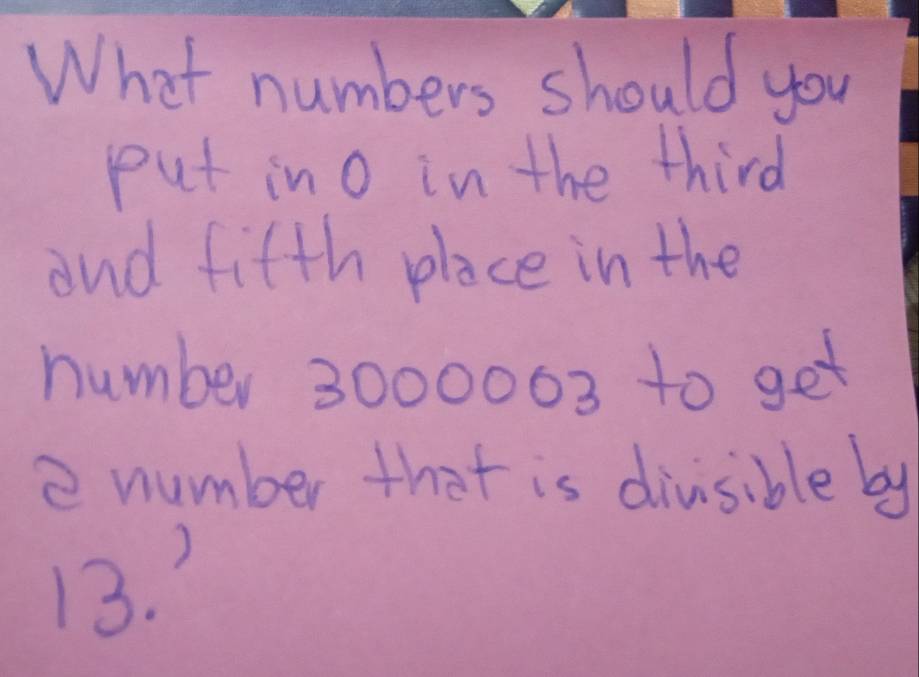 What numbers should you
put in 0 in the third
and fifth place in the
number 3000003 to get
a number that is divisible by
13.?